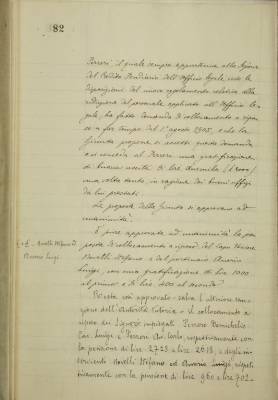 82
Ferrori, il quale sempre appartenne alla Azione
del Credito Fondiario dell'Ufficio Legale, viste le
disposizioni del nuovo regolamento relative alla
riduzione del personale applicato all'Ufficio Le-
gale, ha fatto domanda di collocamento a ripo-
so a far tempo dal 1° agosto 1905, e che la
Giunta propone si accetti questa domanda
e si conceda al Ferrori una gratificazione
di buona uscita di lire duemila (2000)
una volta tanto in ragione dei buoni uffizi
da lui prestati.
La proposta della Giunta si approva ad
unanimità.
È pure approvata ad unanimità la pro-
posta di collocamento a riposo del Capo Usciere
Novelli Stefano e del portinaio Averio
Luigi, con una gratificazione di lire 1000
al primo e di lire 400 al secondo.
Novelli Stefano
Averio Luigi
Resta così approvato, salva l'ulteriore san-
zione dell'Autorità tutoria, il collocamento a
riposo dei Signori impiegati
Cav. Luigi e Ferrori Avv. Carlo, rispettivamente con
la pensione di lire 2723 e lire 2613, e degli in-
servienti Novelli Stefano ed Averio Luigi, rispetti-
vamente con la pensione di lire 960 e lire 702.